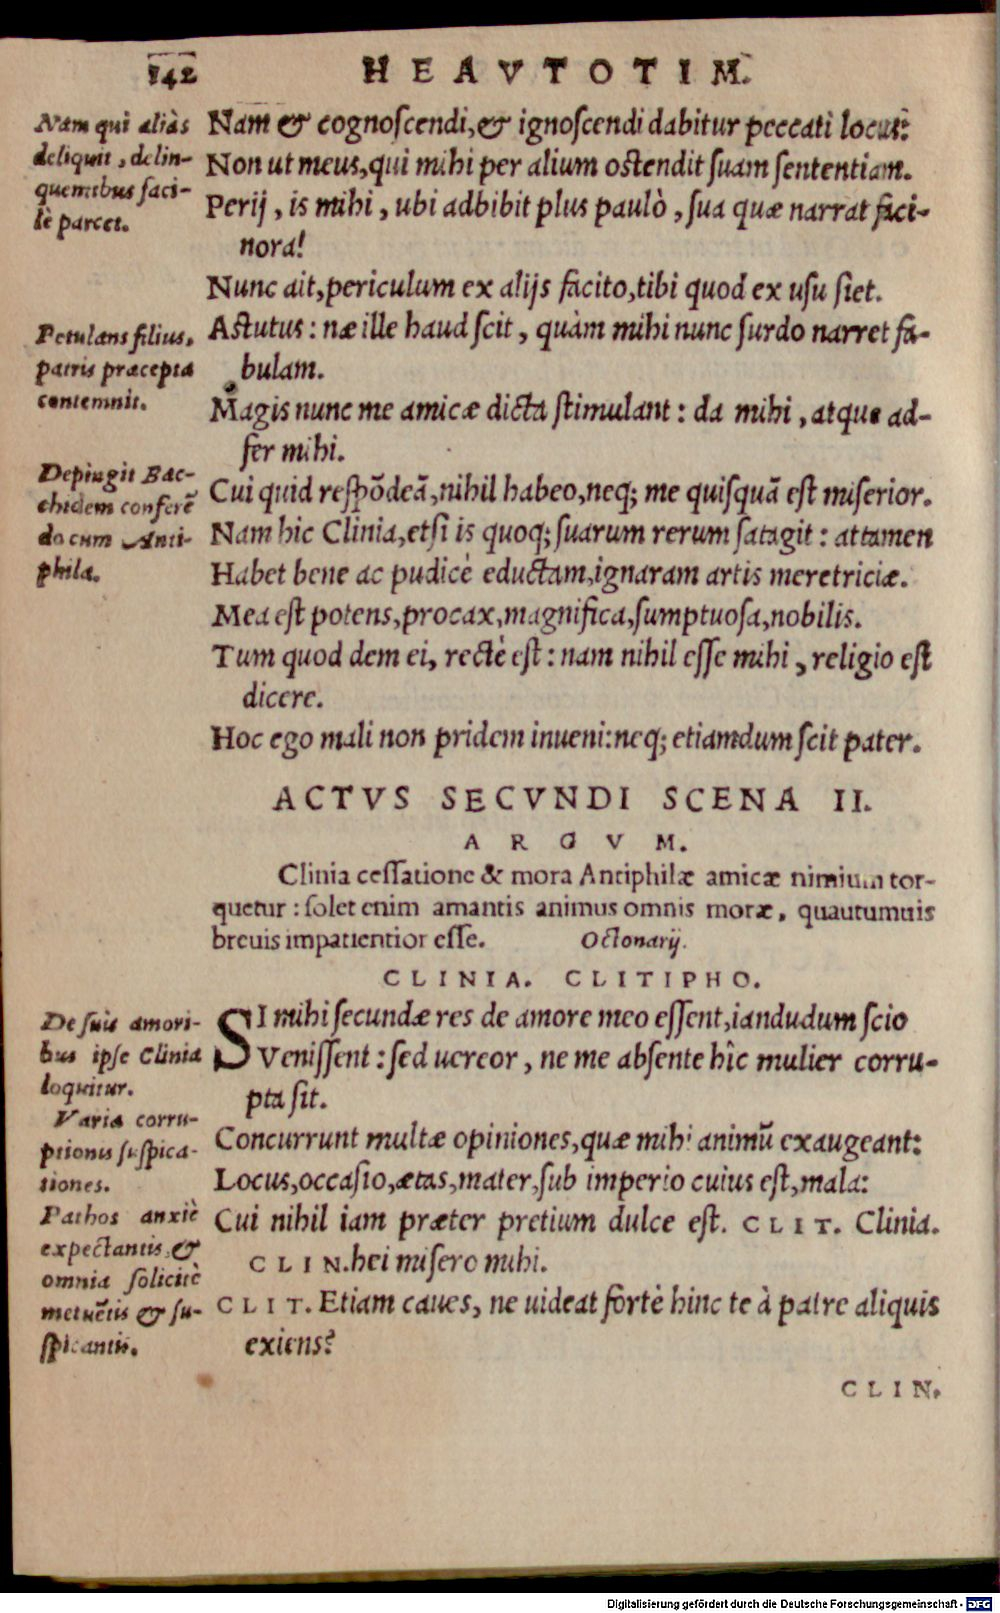 142 HEAVTOTIM.
Nam qui aliàs
deliquit, delin-
quentibus faci-
lè parcet.
Nam & cognoſcendi, & ignoſcendi dabitur peccati locus:
Non ut meus, qui mihi per alium oſtendit ſuam ſententiam.
Perij, is mihi, ubi adbibit plus paulò, ſua quæ narrat faci-
nora!
Nunc ait, periculum ex alijs facito, tibi quod ex uſu ſiet.
Petulans filius,
patris præcepta
contemnit.
Aſtutus: næ ille haud ſcit, quàm mihi nunc ſurdo narret fa-
bulam.
Magis nunc me amicæ dicta ſtimulant: da mihi, atque ad-
fer mihi.
Depingit Bac-
chidem conferẽ
do cum Anti-
phila.
Cui quid reſpõdeã, nihil habeo, neq; me quiſquã eſt miſerior.
Nam hic Clinia, etſi is quoq; ſuarum rerum ſatagit: attamen
Habet bene ac pudicè eductam, ignaram artis meretriciæ.
Mea eſt potens, procax, magnifica, ſumptuoſa, nobilis.
Tum quod dem ei, rectè eſt: nam nihil eſſe mihi, religio eſt
dicere.
Hoc ego mali non pridem inueni: neq; etiamdum ſcit pater.
ACTVS SECVNDI SCENA II.
ARGVM.
Clinia ceſſatione & mora Antiphilæ amicæ nimium tor-
quetur: ſolet enim amantis animus omnis moræ, quantumuis
breuis impatientior eſſe. Octonarij.
CLINIA. CLITIPHO.
De ſuis amori-
bus ipſe Clinia
loquitur.
Varia corru-
ptionis ſuſpica-
tiones.
Pathos anxiè
expectantis, &
omnia ſolicitè
metuẽtis & ſu-
ſpicantis.
SI mihi ſecundæ res de amore meo eſſent, iandudum ſcio
Veniſſent: ſed uereor, ne me abſente hîc mulier corru-
pta ſit.
Concurrunt multæ opiniones, quæ mihi animũ exaugeant:
Locus, occaſio, ætas, mater, ſub imperio cuius eſt, mala:
Cui nihil iam præter pretium dulce eſt. CLIT. Clinia.
CLIN. hei miſero mihi.
CLIT. Etiam caues, ne uideat fortè hinc te à patre aliquis
exiens?
CLIN.
Digitalisierung gefördert durch die Deutsche Forschungsgemeinschaft - DFG